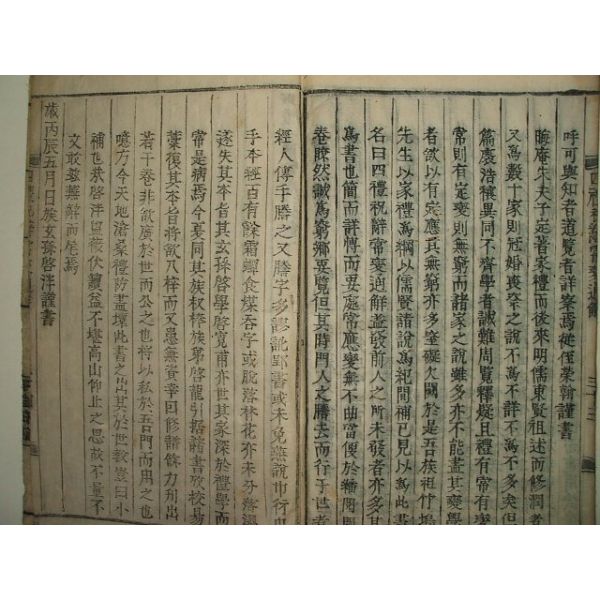 呼可與知者道覽者詳察焉 從侄榮翰謹書
晦庵朱夫子定著家禮而後來明儒東賢祖述而修潤者
又爲數十家則冠婚喪祭之說不爲不詳不爲不多矣但
篇袠浩穰異同不齊學者誠難周覽釋疑且禮有常有變
常則有定變則無窮而諸家之說雖多亦不能盡其變學
者何以有以應其無窮亦多室礙久闕於是吾族祖竹塢
先生以家禮爲本以國儒賢諸說爲紀間補已見以爲若
名曰四禮祝辭常變通解盖發前人之所未發者亦多其
爲書也簡而詳博而要處常應變無不曲當便於繙閱開
卷瞭然誠爲窮鄉要覽但其時門人之謄去而行于世者
經人傳手謄之又謄字多謬訛郢書或未免燕說巾衍中
手本經百有餘霜蟬食葉吞字或脫落林花亦未分落漏
遂失其本旨其玄孫啓學啓寬甫亦世其家深於禮學而
常是病焉今夏同其族权梓族弟啓龍引据諸書攷校易
藁復其本旨將欲入梓而又患無資幸因修餙餘力刊出
若干卷非欲廣於世而公之也將以私於吾門而用之也
噫方今天地滄桑禮防盡壞此書之出其於世敎豈曰小
補也哉啓洋曰薇伏讀益不堪高山仰止之思故不量不
文敢綴蕪辭而尾焉
歲丙辰五月日族玄孫啓洋謹書